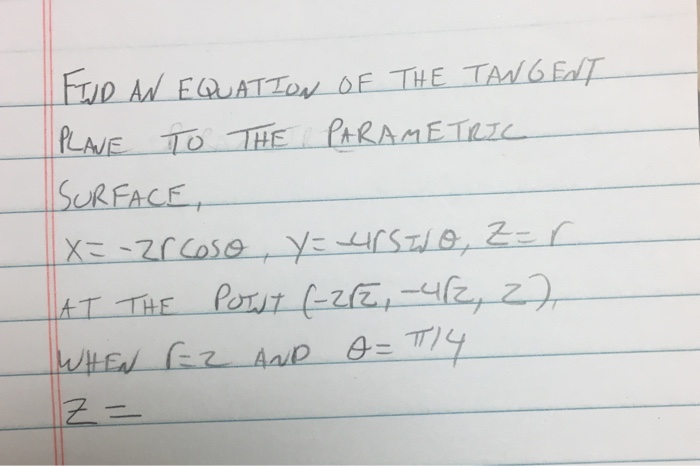 FIND AN EQUATION OF THE TANGENT
PLANE TO THE PARAMETRIC
SURFACE,
X = -2rcosθ, Y = -4rSINθ, Z = r
AT THE POINT (-2√2, -4√2, 2),
WHEN r=2 AND θ = π/4
Z =